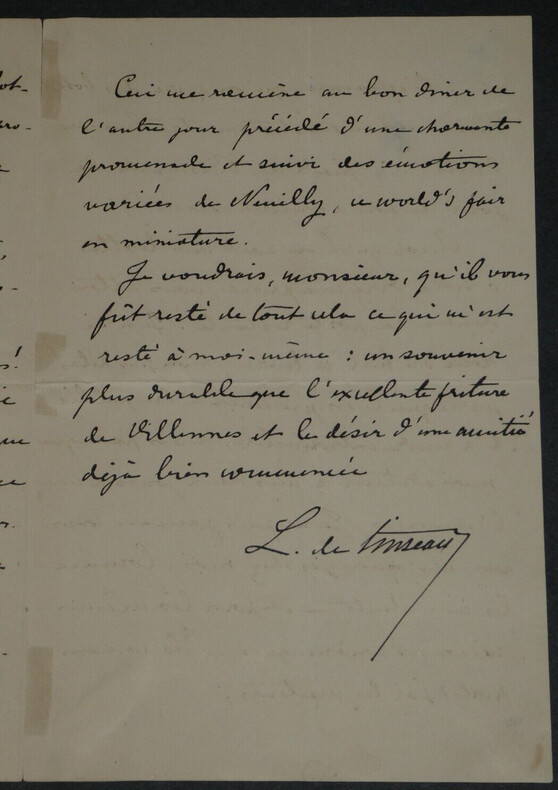 Ceci me ramène au bon diner de
l'autre jour précédé d'une charmante
promenade et suivi des émotions
variées de Neuilly, ce world's fair
en miniature.
Je voudrais, monsieur, qu'il vous
fût resté de tout cela ce qui m'est
resté à moi-même : un souvenir
plus durable que l'excellente friture
de Villennes et le désir d'une amitié
déjà bien commencée
L. de Tinseau